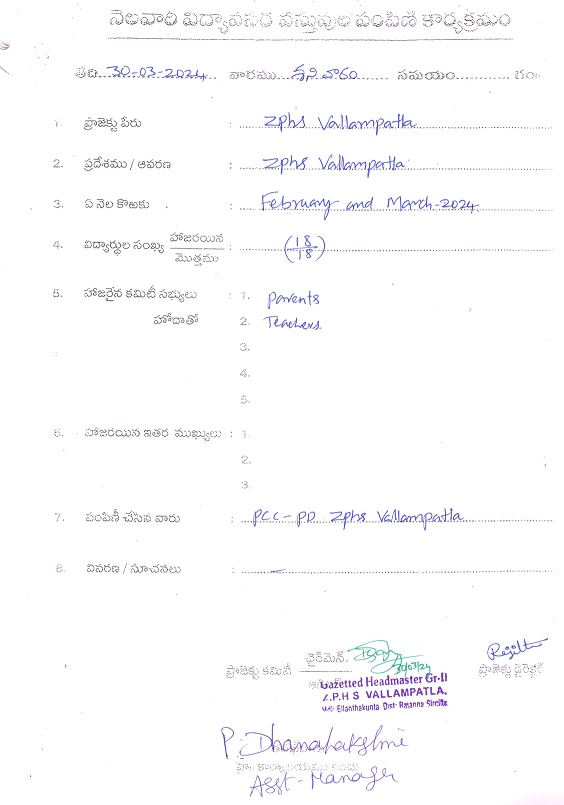 నెలవారి విద్యావసర వస్తువుల పంపిణి కార్యక్రమం
తేది 30-03-2024 వారము శనివారం సమయం గం॥
1. ప్రాజెక్టు పేరు : Zphs Vallampatla
2. ప్రదేశము / ఆవరణ : Zphs Vallampatla
3. ఏ నెల కొఱకు : February and March-2024
4. విద్యార్థుల సంఖ్య హాజరయిన / మొత్తము : (18/18)
5. హాజరైన కమిటీ సభ్యులు : 1. parents
హోదాతో 2. Teachers.
3.
4.
5.
6. హాజరయిన ఇతర ముఖ్యులు : 1.
2.
3.
7. పంపిణీ చేసిన వారు : PCC-PD Zphs Vallampatla
8. వివరణ / సూచనలు : —
ఛైర్‌మెన్,
30/03/24
ప్రాజెక్టు కమిటీ
ప్రాజెక్టు డైరెక్టర్
Gazetted Headmaster Gr-II
Z.P.H S VALLAMPATLA.
Ellanthakunta Dist- Rajanna Sircilla
P. Dhanalakshmi
Asst-Manager